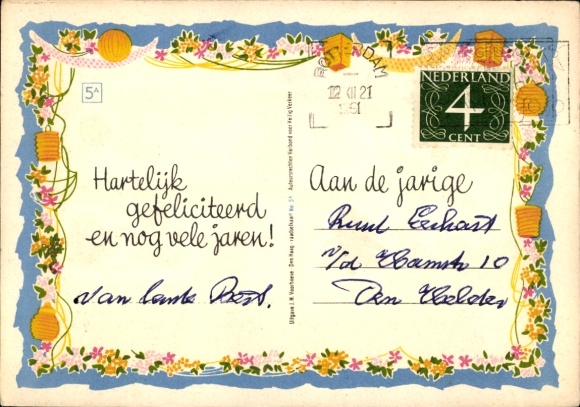 5A
Hartelijk
gefeliciteerd
en nog vele jaren!
van tante Bets.
Uitgave J.H. Voorhoeve Den Haag
Auteursrechten Verbond voor Veilig Verkeer
ROTTERDAM
12 XII 21
1951
NEDERLAND
4
CENT
Aan de jarige
Ruud
v/d Hamstr 10
Den Helder